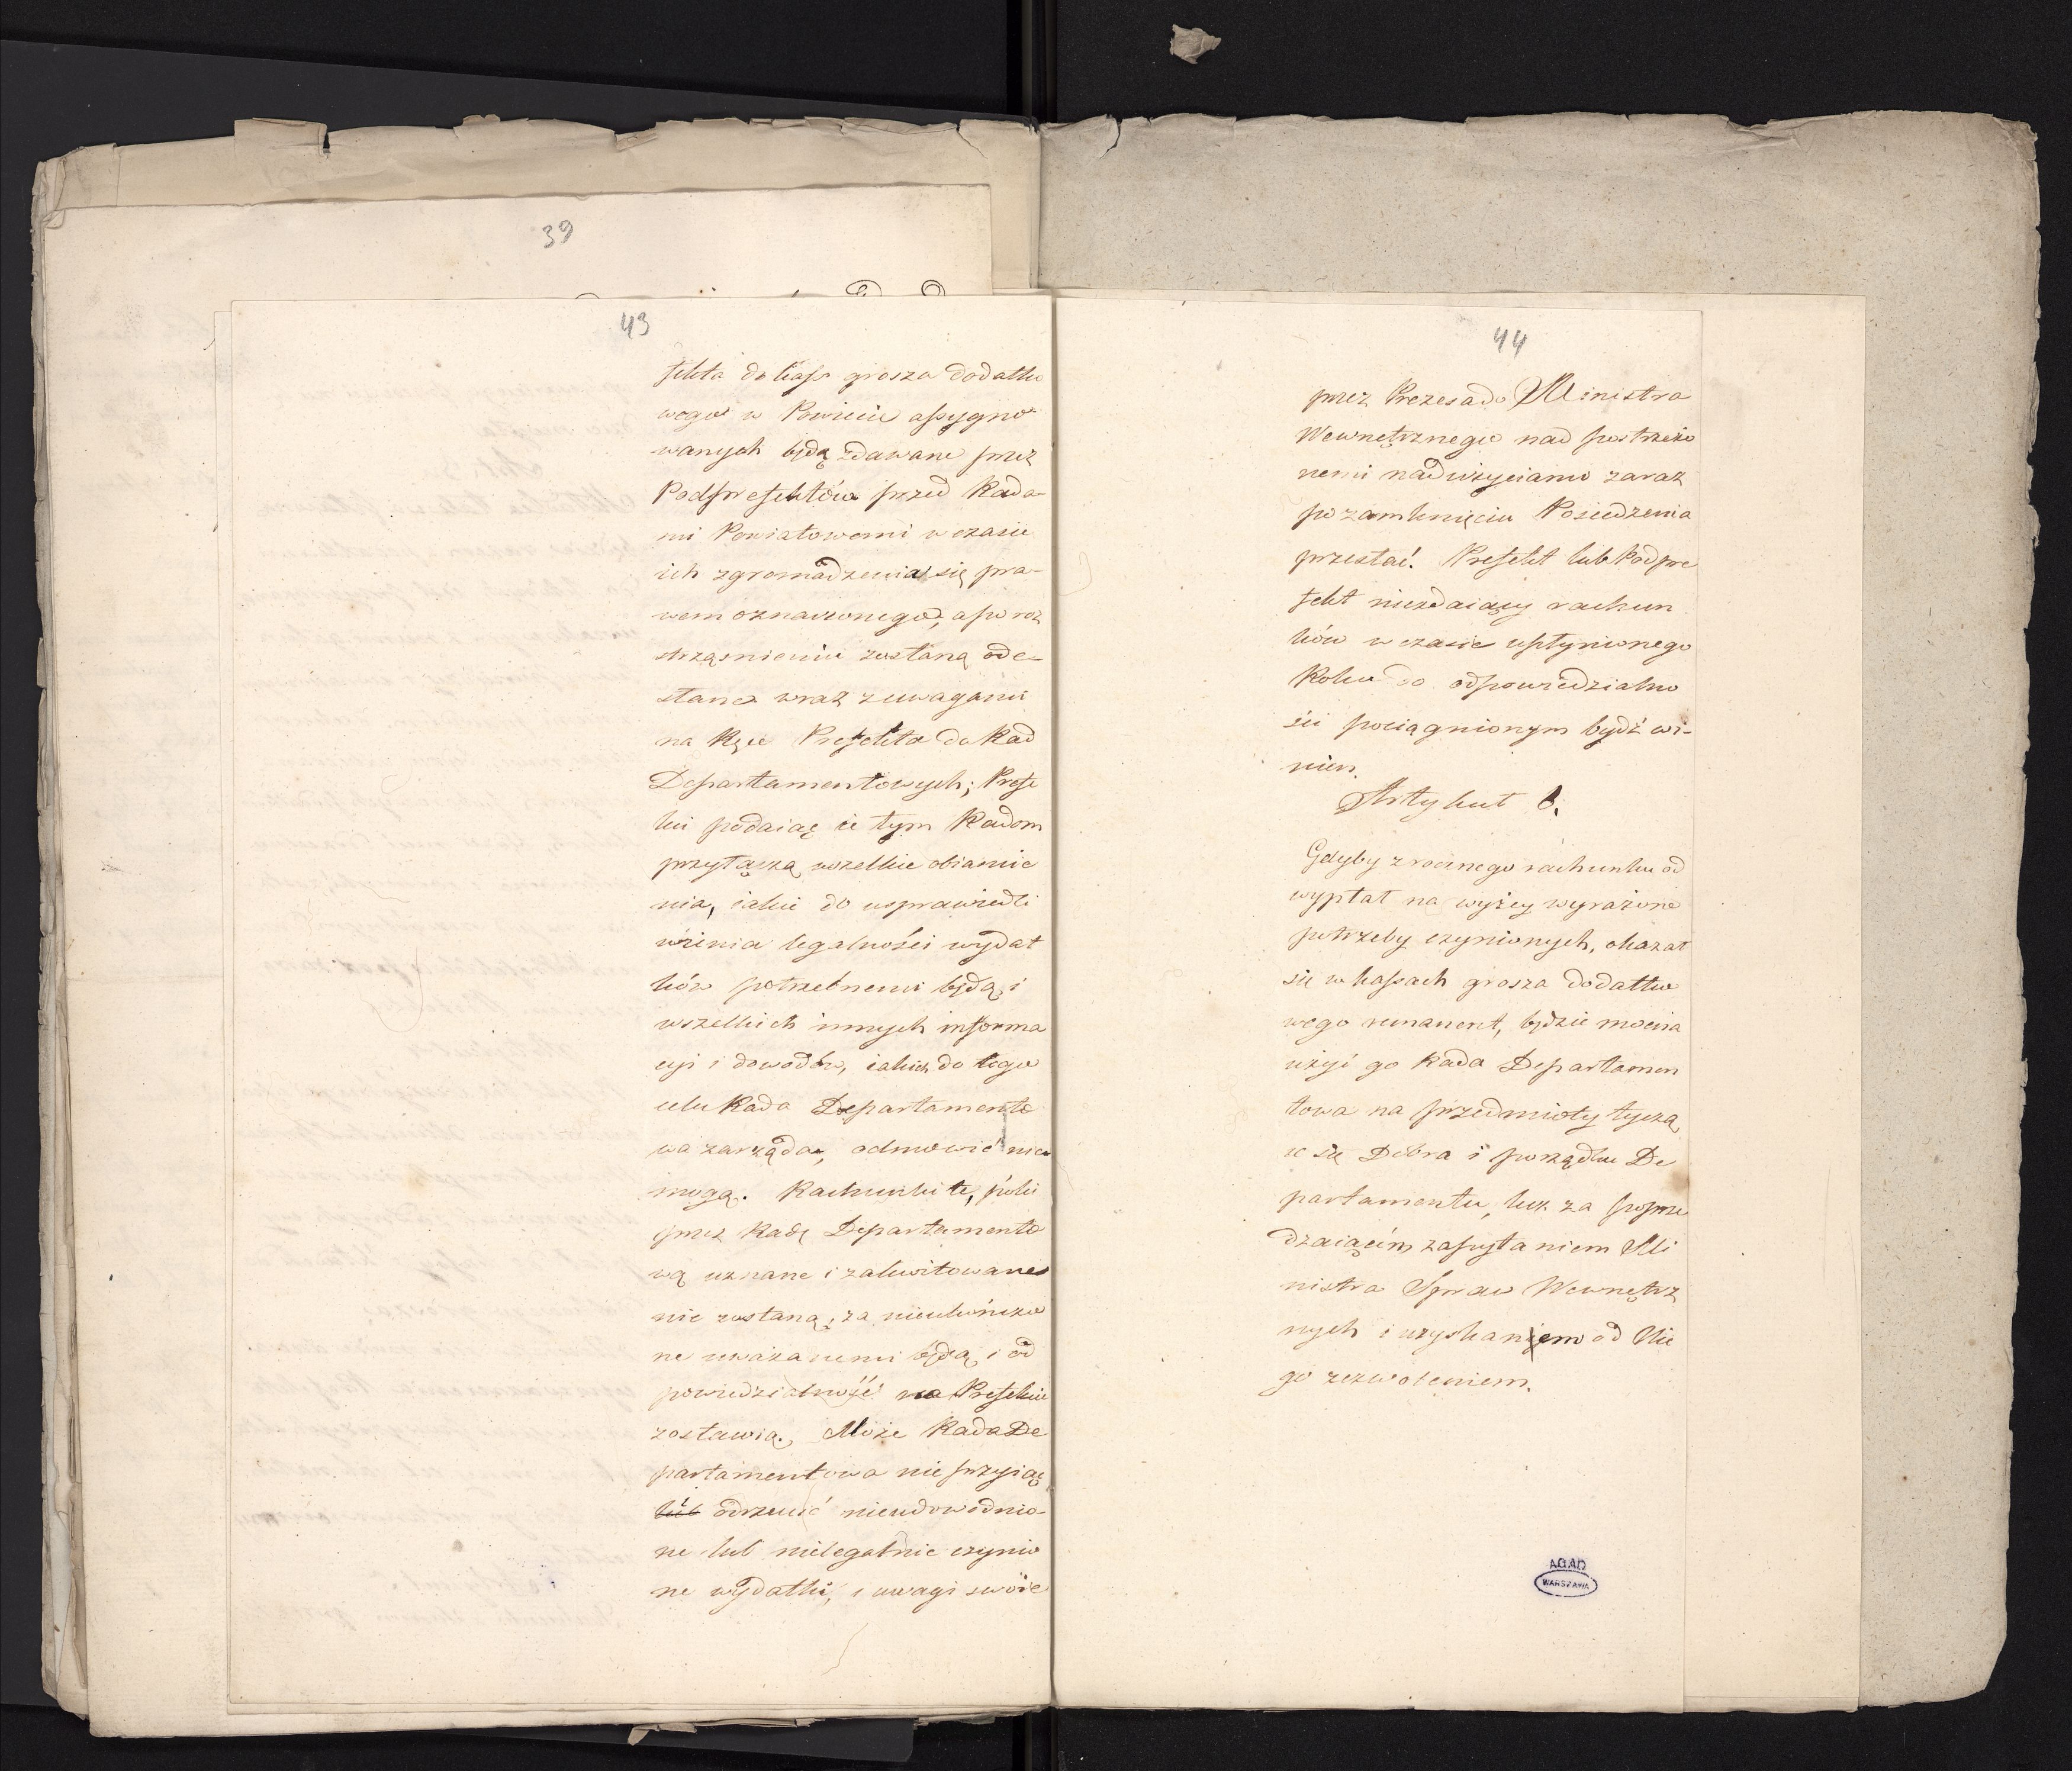 39
43
fekta do kass grosza dodatko
wego w Powiecie assygno
wanych będą zdawane przez
Podprefektów przed Rada-
mi Powiatowemi w czasie
ich zgromadzenia się pra-
wem oznaczonego, a po roz
strząśnieniu zostaną ode-
słane wraz z uwagami
na Ręce Prefekta do Rad
Departamentowych; Prefe
kci podaiąc ie tym Radom
przyłączą wszelkie obiaśnie
nia, iakie do usprawiedli
wienia legalności wydat
ków potrzebnemi będą, i
wszelkich innych informa
cyi i dowodów, iakich do tego
celu Rada Departamento
wa zarząda, odmówić nie
mogą. Rachunki te, póki
przez Radę Departamento
wą uznane i zakwitowane
nie zostaną, za nieukończo
ne uważanemi będą, i od
powiedzialność na Prefekcie
zostawią. Może Rada De
partamentowa nie przyiąć
lub odrzucić nieudowodnio-
ne lub nielegalnie czynio
ne wydatki, i uwagi swoie
44
przez Prezesa do Ministra
Wewnętrznego nad postrzeżo
nemi nadużyciami zaraz
po zamknięciu Posiedzenia
przesłać. Prefekt lub Podpre
fekt niezdaiący rachun
ków w czasie upłynionego
Roku do odpowiedzialno
ści pociągnionym bydź wi-
nien.
Artykuł 6.
Gdyby z rocznego rachunku od
wypłat na wyżey wyrażone
potrzeby czynionych, okazał
się w kassach grosza dodatko
wego remanent, będzie mocna
użyć go Rada Departamen
towa na przedmioty tyczą
ce się Dobra i porządku De
partamentu, lecz za poprze
dzaiącém zapytaniem Mi
nistra Spraw Wewnętrz
nych i uzyskaniem od Nie
go zezwoleniem.
AGAD
WARSZAWA